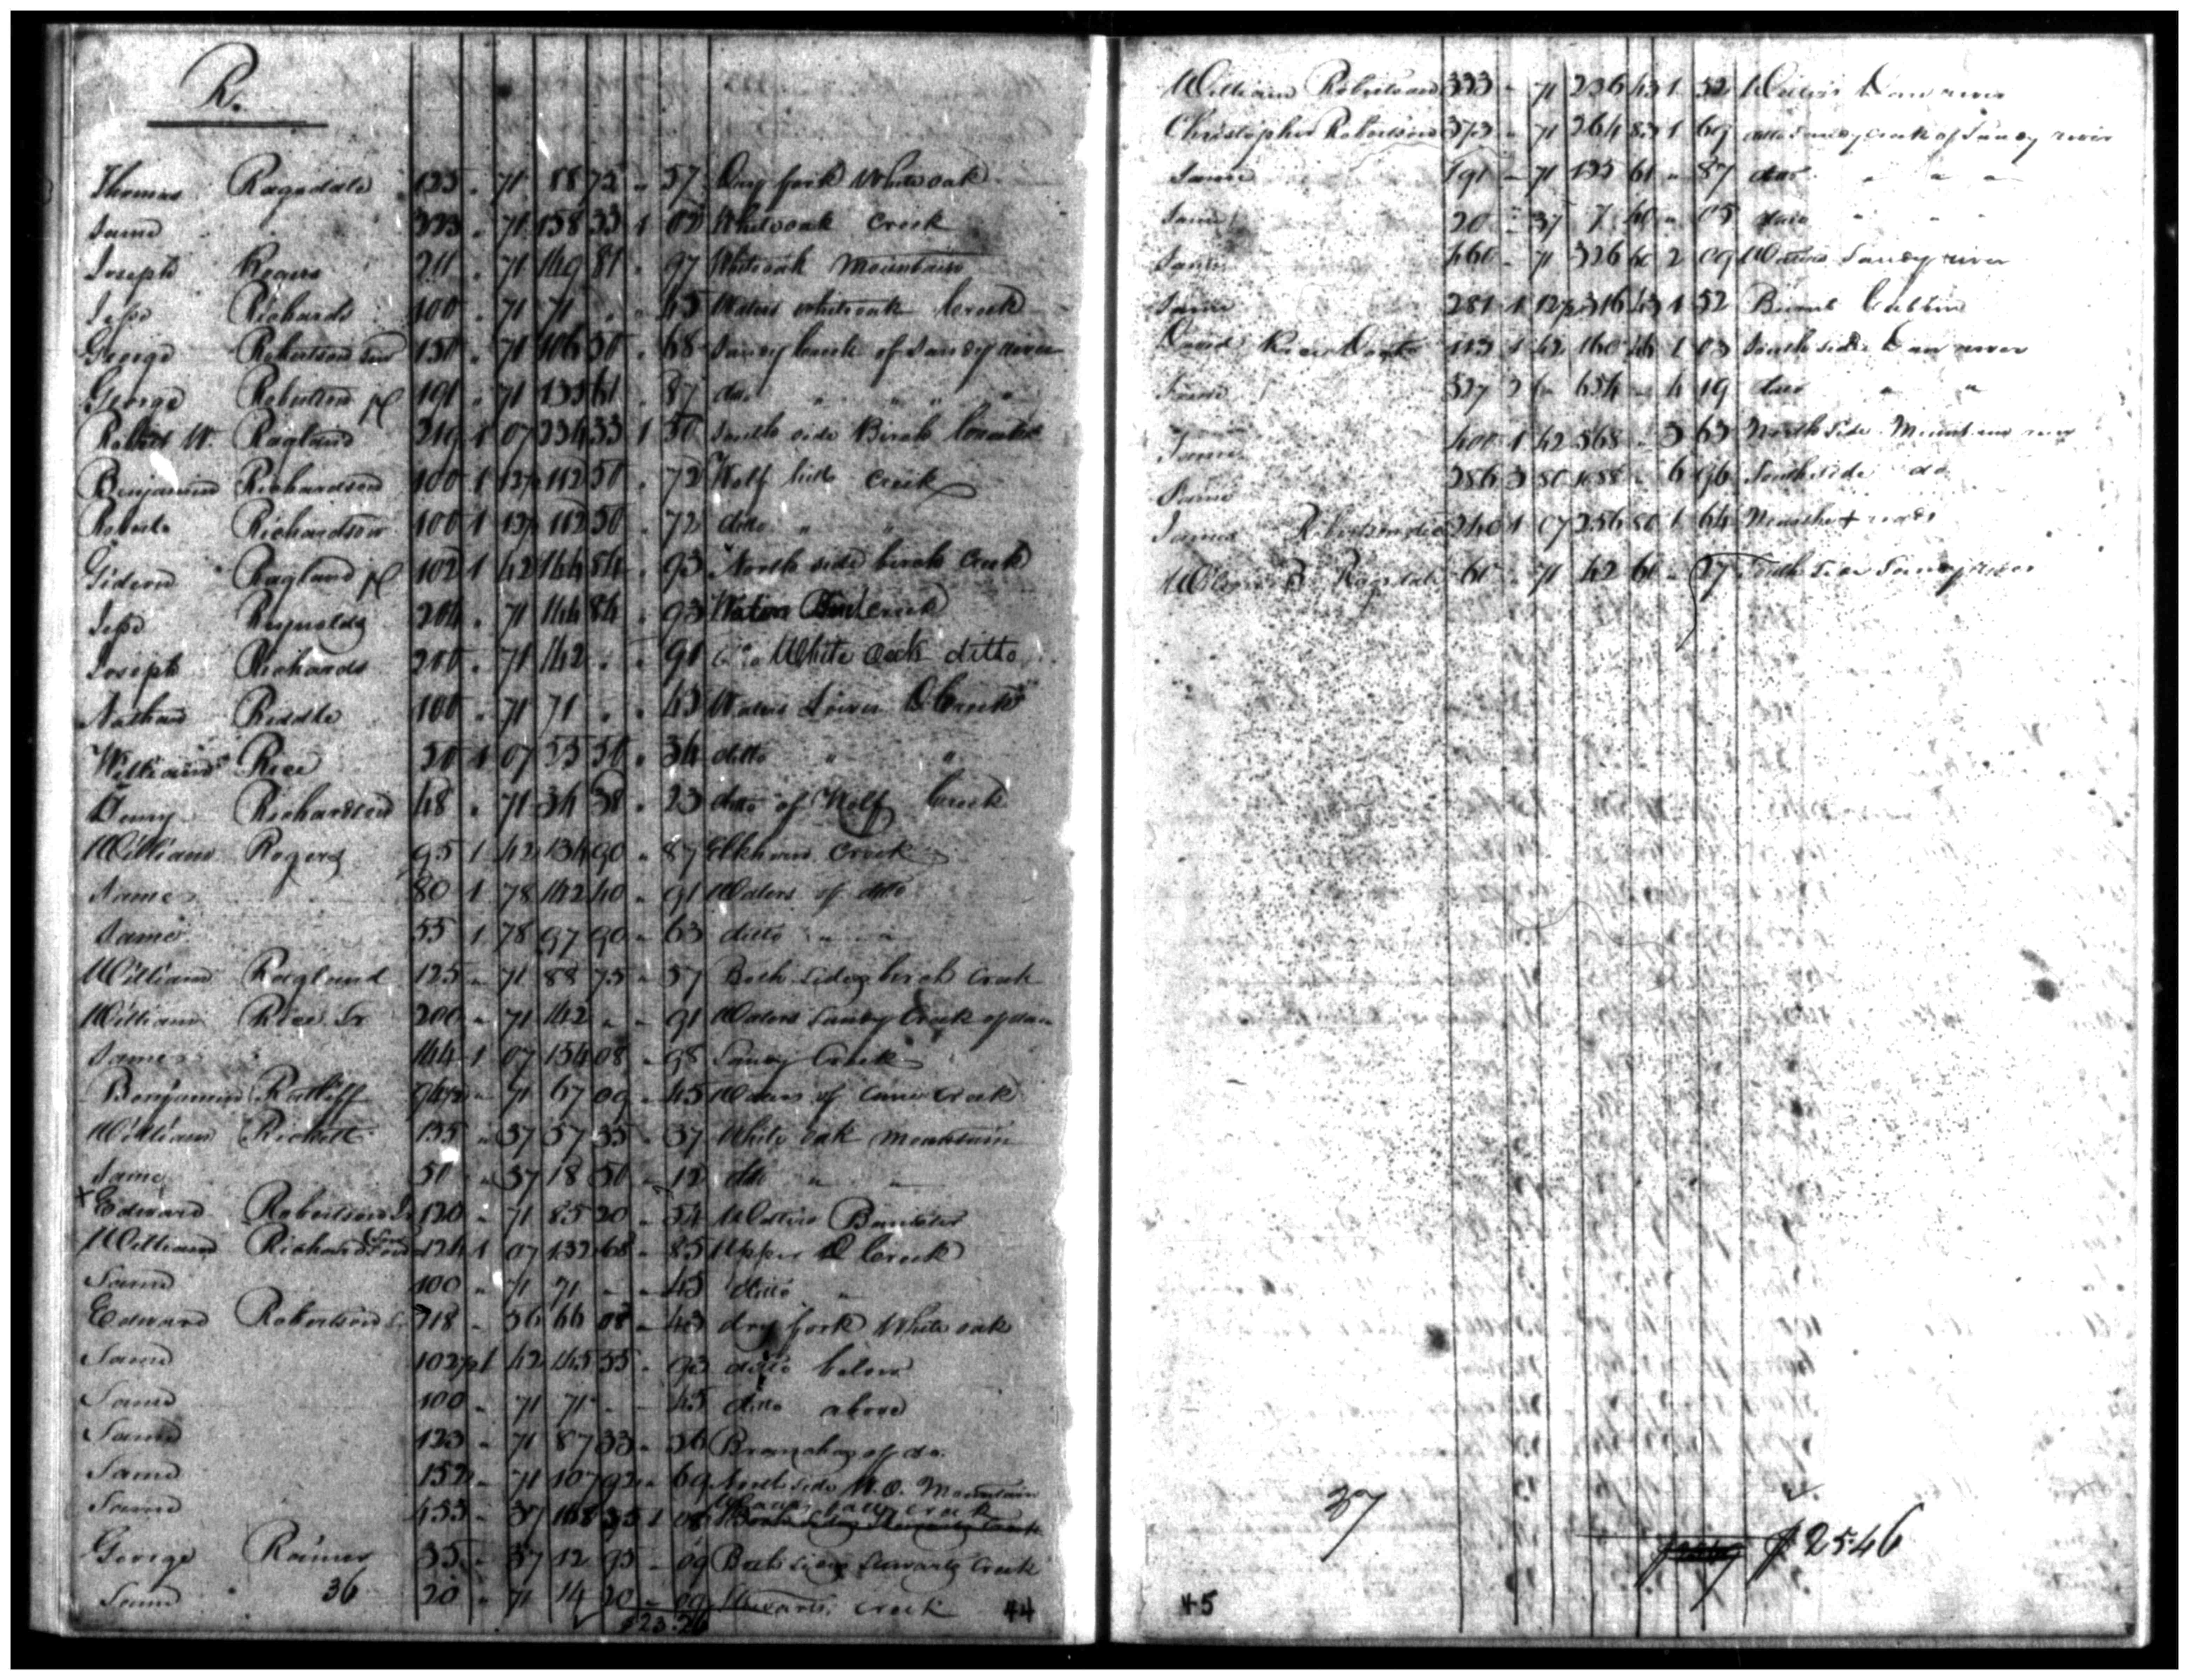 R.
Thomas Ragsdale 125 " 71 88 75 " 57 Dry fork White oak
Same 223 " 71 158 33 1 02 Whiteoak Creek
Joseph 211 " 71 149 81 " 97 Whiteoak Mountain
Jesse Richards 100 " 71 71 " " 45 Waters whiteoak Creek
George Robertson 150 " 71 106 50 " 68 Sandy Creek of Sandy river
George Robertson 191 " 71 135 61 " 87 ditto " " " "
Robert W. Ragland 219 1 07 234 33 1 50 South side Birch
Benjamin Richardson 100 1 12½ 112 50 " 72 Wolf Creek
Roberts Richardson 100 1 12½ 112 50 " 72 ditto " "
Gideon Ragland 102 1 42 144 84 " 93 North side birch Creek
Jesse Reynolds 204 " 71 144 84 " 93 Waters Creek
Joseph Richards 200 " 71 142 " " 91 White Oak ditto
Nathan Riddle 100 " 71 71 " " 45 Waters Lower D Creek
William Rice 50 1 07 53 50 " 34 ditto " "
Richardson 48 " 71 34 38 " 23 ditto of Wolf Creek
William Rogers 95 1 42 134 90 " 87 Elkhorn Creek
Same 80 1 78 142 40 " 91 Waters of ditto
Same 55 1 78 97 90 " 63 ditto " "
William Ragland 125 " 71 88 75 " 57 Both sides birch Creek
William Rice Sr 200 " 71 142 " " 91 Waters Sandy Creek of
Same 144 1 07 154 08 " 98 Sandy Creek
Benjamin Ratliff 94½ " 71 67 09 " 45 Waters of Creek
William 155 " 37 57 35 " 37 White oak mountain
Same 50 " 37 18 50 " 12 ditto " "
x Edward Robertson Jr 120 " 71 85 20 " 54 Waters Banister
William Richardson 124 1 07 132 68 " 85 Upper D Creek
Same 100 " 71 71 " " 45 ditto "
Edward Robertson 118 " 56 66 08 " 43 dry fork White oak
Same 102½ 1 42 145 55 " 93 ditto below
Same 100 " 71 71 " " 45 ditto above
Same 123 " 71 87 33 " 56 Branches of do.
Same 152 " 71 107 92 " 69 North side W.O. Mountain
Same 455 " 37 168 35 1 08 creek
George 35 " 37 12 95 " 09 Both sides Stewarts Creek
Same 36 20 " 71 14 20 " 09 Stewarts creek
$23.26
44
William Robertson 333 " 71 236 43 1 52 Waters Dan river
Christopher Robertson 373 " 71 264 83 1 69 ditto Sandy creek of Sandy river
Same 191 " 71 135 61 " 87 ditto " " "
Same 20 " 37 7 40 " 05 ditto " "
Same 460 " 71 326 60 2 09 Waters Sandy river
Same 281 1 12½ 316 43 1 52 Burnt Cabbin
David 113 1 42 160 46 1 03 South side Dan river
Same 327 2 " 654 " 4 19 ditto " "
Same 400 1 42 568 " 3 63 North side Mountain
Same 286 3 80 1088 " 6 96 South side do
James Robertson 240 1 07 256 80 1 64
B. Ragsdale 60 " 71 42 60 " 27 Sandy river
37
$25.46
45